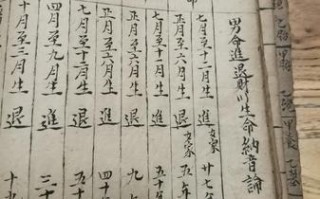 男命進退財以生命納音論
七月至十二月生 進 女家 廿七年
正月至六月生 退 女家 五年
七月至十二月生 進 五十
正月至六月生 退 九
正月至六月生 進 四十
七月至十二月生 退 五十
四月至九月生 進 三十
十月至三月生 退 十九